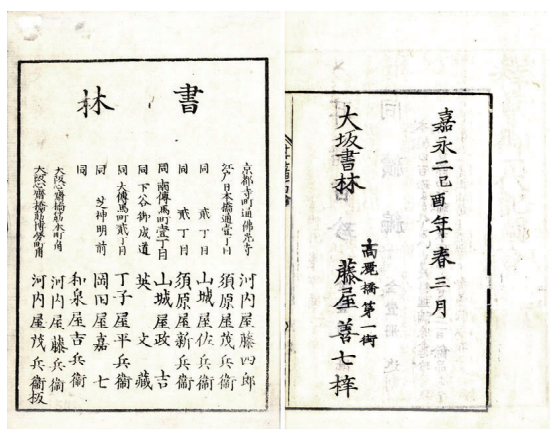 嘉永二己酉年春三月
大坂書林
高麗橋第一街
藤屋善七梓
書林
京都寺町通佛光寺 河内屋藤四郎
江戸日本橋通壹丁目 須原屋茂兵衞
同 貳丁目 山城屋佐兵衞
同 貳丁目 須原屋新兵衞
同 南傳馬町壹丁目 山城屋政吉
同 下谷御成道 英文藏
同 大傳馬町貳丁目 丁子屋平兵衞
同 芝神明前 岡田屋嘉七
同 和泉屋吉兵衞
大阪心齋橋筋本町角 河内屋藤兵衞
大阪心齋橋筋博勞町角 河内屋茂兵衞板